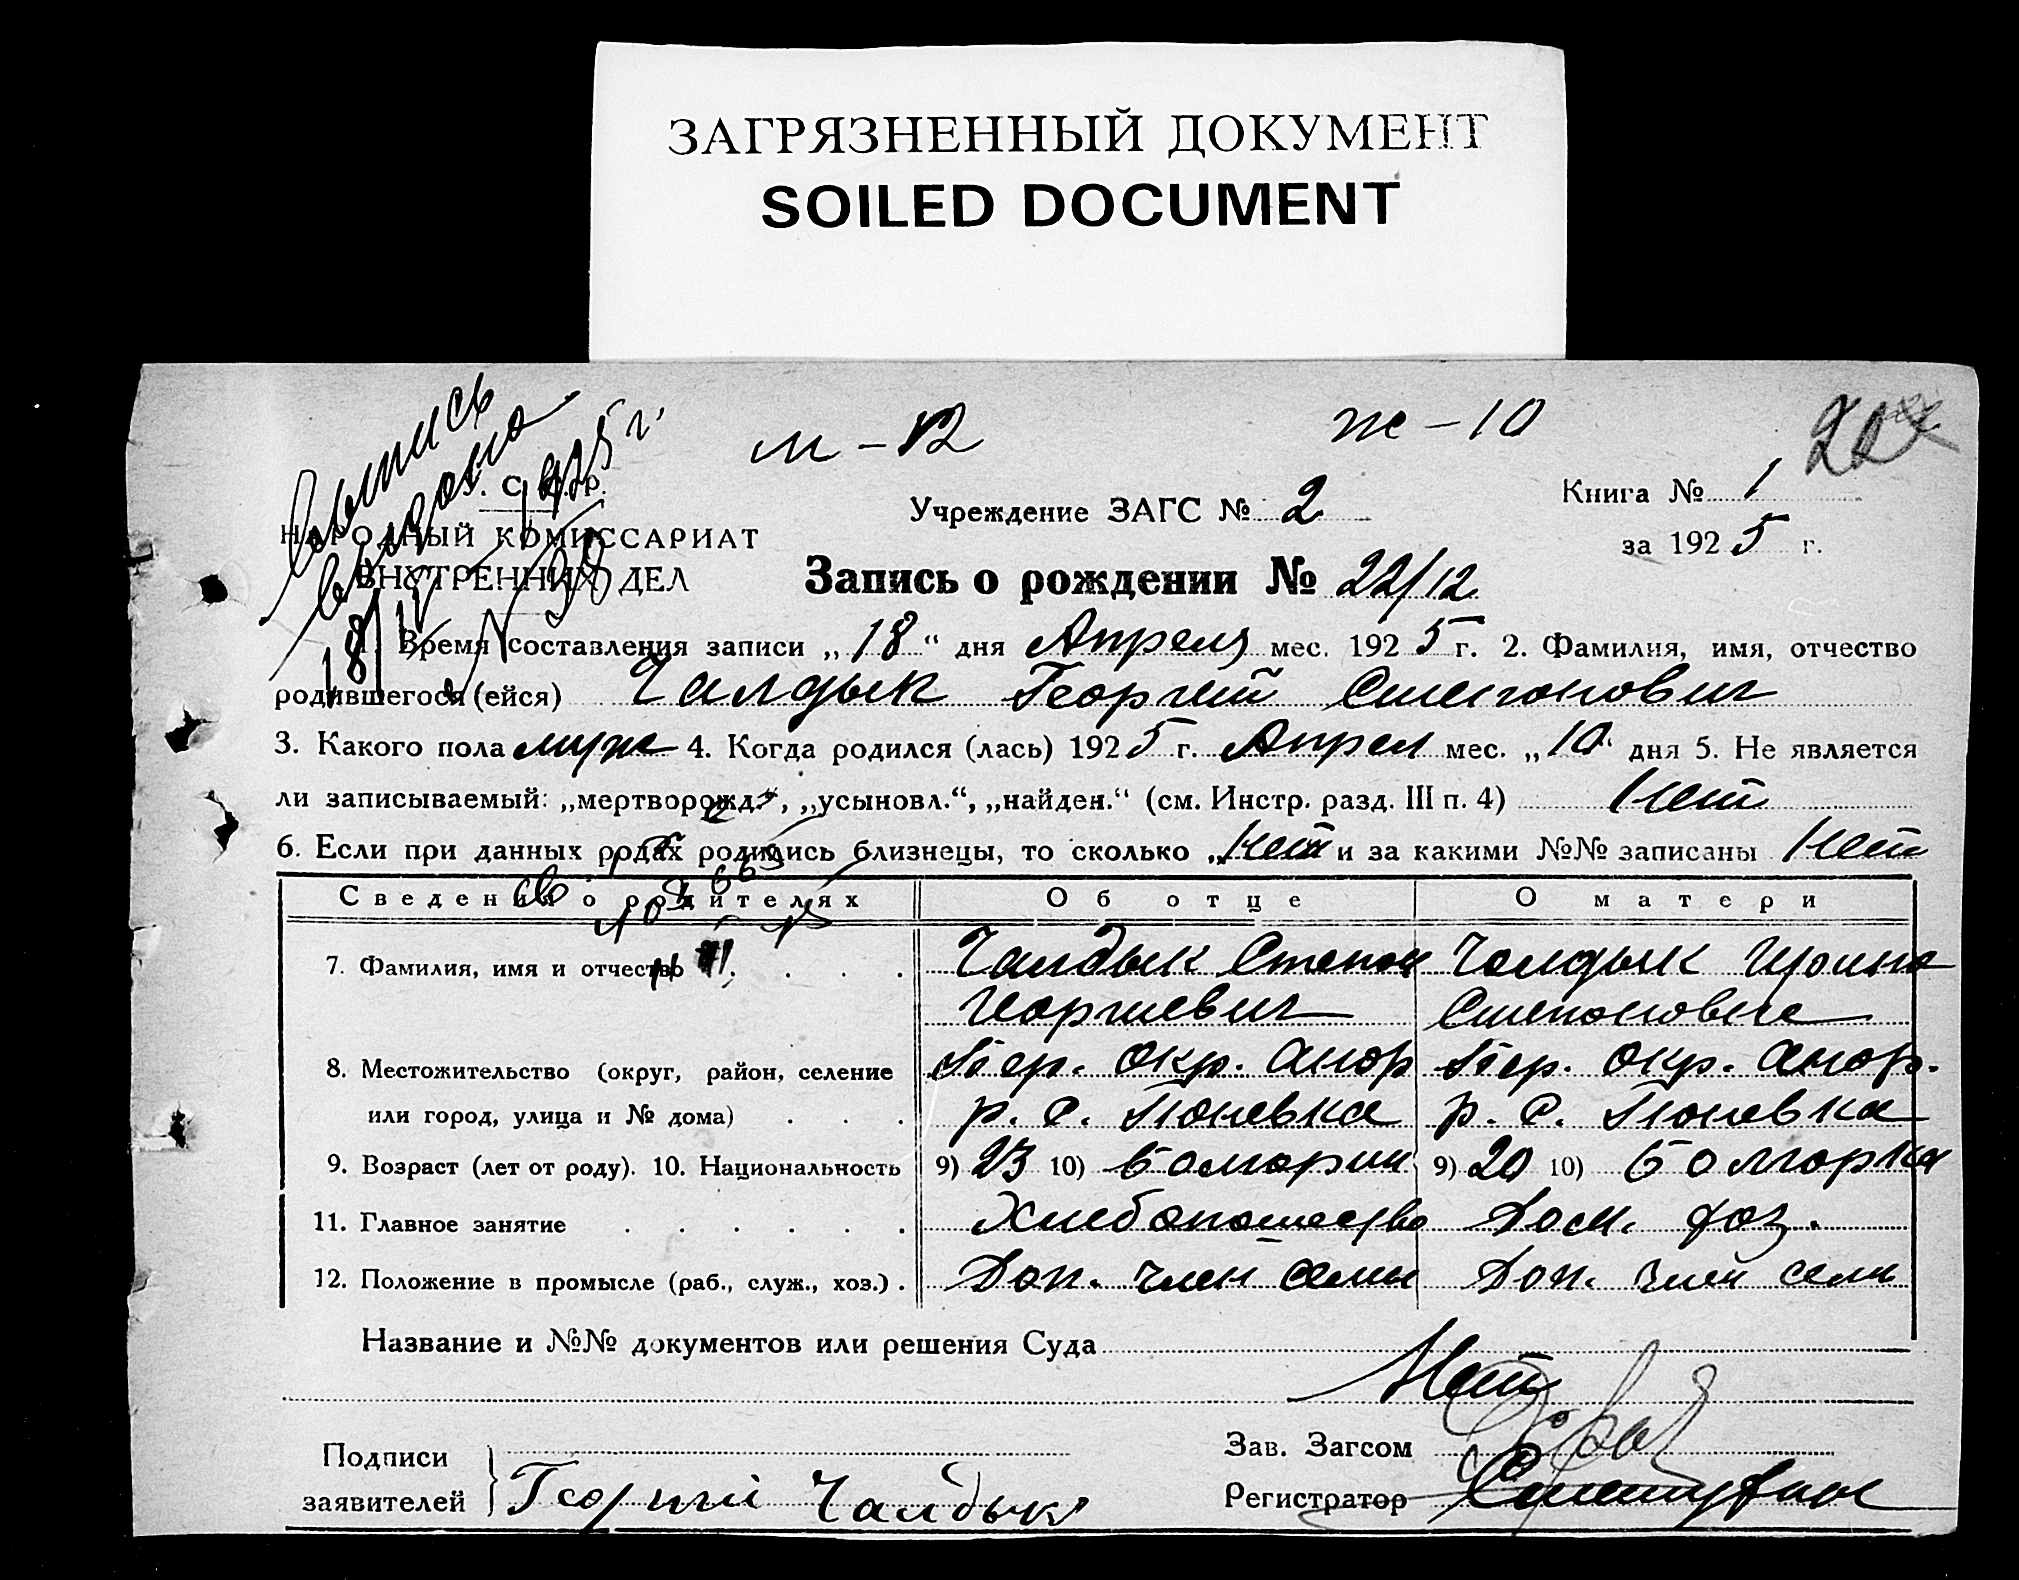 ЗАГРЯЗНЕННЫЙ ДОКУМЕНТ
SOILED DOCUMENT
Выпись
выдана
м - 12
ж - 10
НАРОДНЫЙ КОМИССАРИАТ
ВНУТРЕННИХ ДЕЛ
Учреждение ЗАГС № 2
Книга № 1
за 1925 г.
Запись о рождении № 22/12
1. Время составления записи „18“ дня Апреля мес. 1925 г. 2. Фамилия, имя, отчество
родившегося (ейся) Чалдык Георгий Степонович
3. Какого пола муж 4. Когда родился (лась) 1925 г. Апрел мес. „10“ дня 5. Не является
ли записываемый: „мертворожд.“, „усыновл.“, „найден.“ (см. Инстр. разд. III п. 4) Нет
6. Если при данных родах родились близнецы, то сколько „Нет и за какими №№ записаны Нет
Сведения о родителях Об отце О матери
7. Фамилия, имя и отчество . . . . Чалдык Степон Чолдык Ирина
Георгиевич Степоновна
8. Местожительство (округ, район, селение окр. окр.
или город, улица и № дома) . . . р. с. р. с.
9. Возраст (лет от роду). 10. Национальность 9) 23 10) Болгорин 9) 20 10) Болгорка
11. Главное занятие . . . . . . Хлебопошество Дом. хоз.
12. Положение в промысле (раб., служ., хоз.) . Доп. член семи Доп. член семи
Название и №№ документов или решения Суда
Нет
Подписи
заявителей Георгий Чалдык
Зав. Загсом
Регистратор